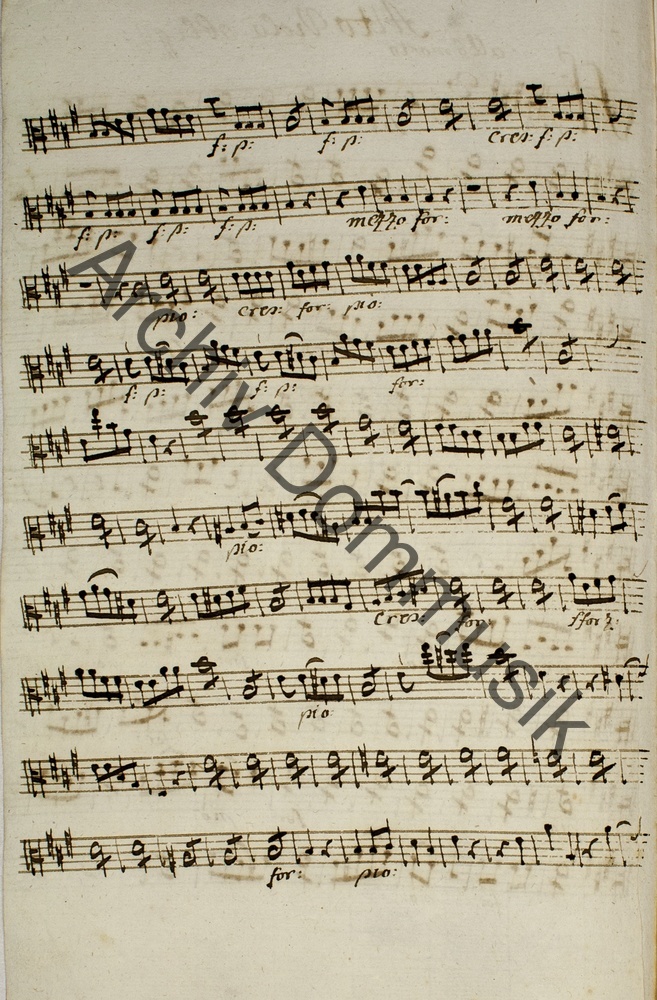 f: p: f: p: cres: f: p:
f: p: f: p: f: p: mezzo for: mezzo for:
pio: cres: for: pio:
f: p: f: p: for:
pio:
cres for: sforz:
pio
for: pio:
Archiv Dommusik